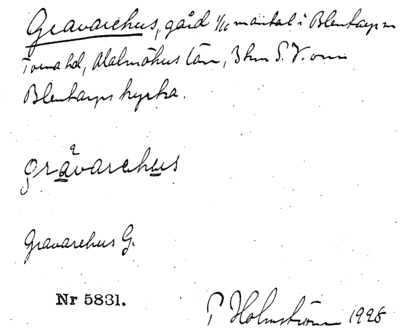 Gravarehus, gård 1/16 mantal i Blentarp sn
Torna hd, Malmöhus län, 3 km S.V. om
Blentarps kyrka.
gråvarehus
Gravarehus G.
Nr 5831.
P Holmström 1928